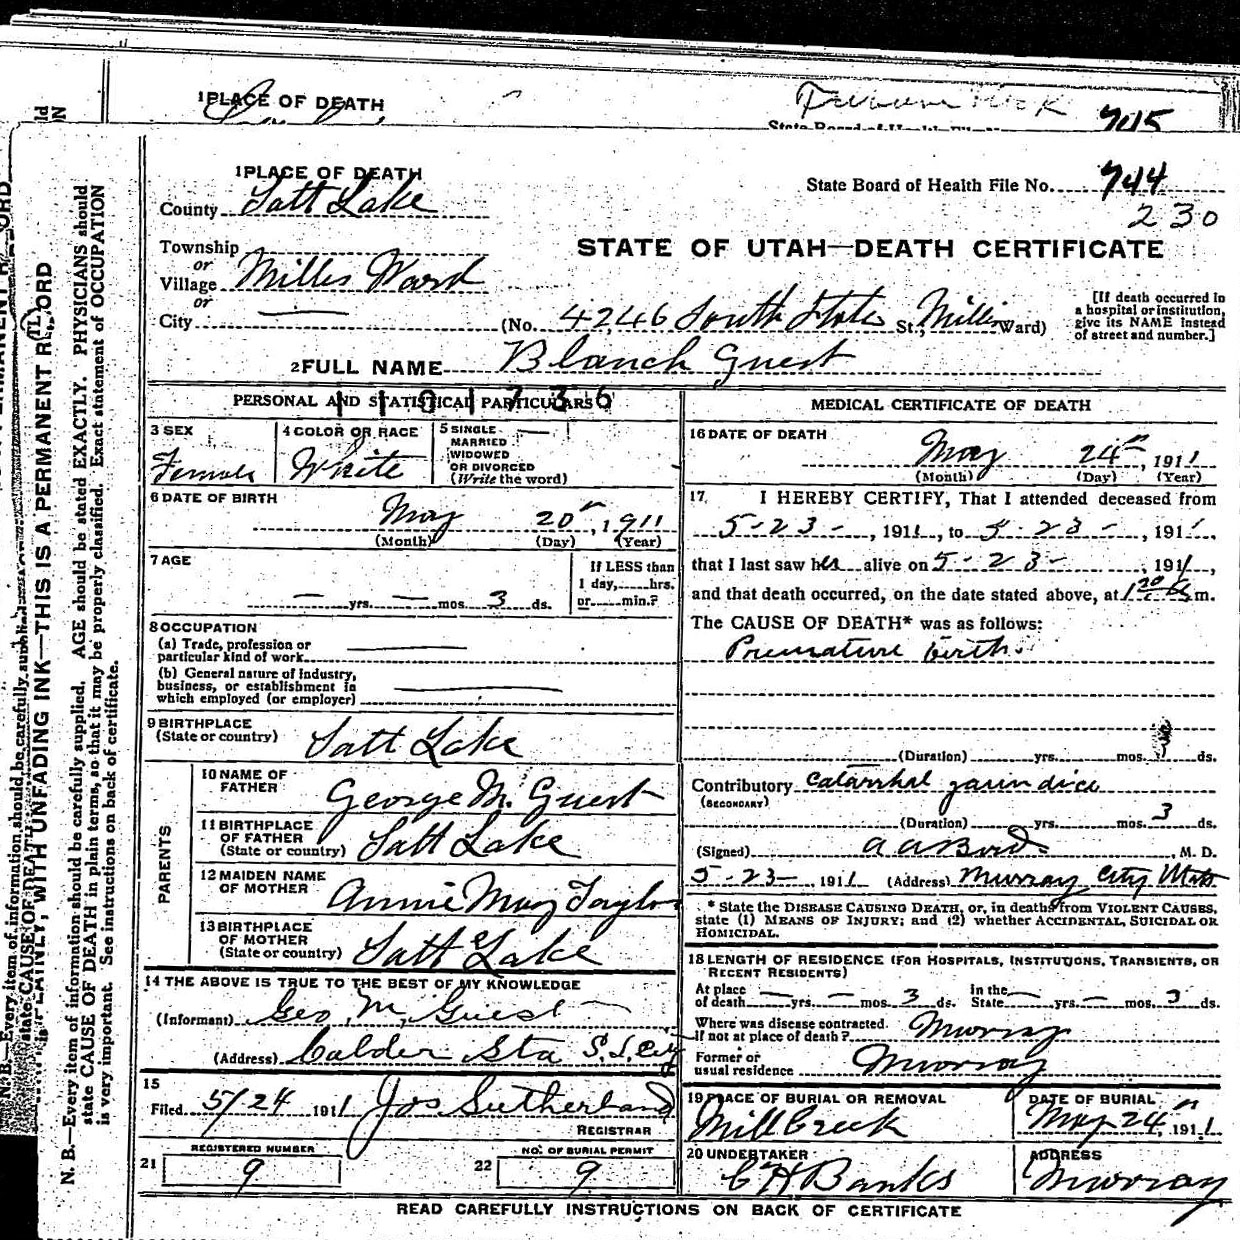 1 PLACE OF DEATH
745
1 PLACE OF DEATH
State Board of Health File No. 744
230
County Salt Lake
STATE OF UTAH—DEATH CERTIFICATE
Township
or
Village Millers Ward
or
City
(No. 4246 South State St., Ward)
[If death occurred in
a hospital or institution,
give its NAME instead
of street and number.]
2 FULL NAME Blanch Guest
1101736
PERSONAL AND STATISTICAL PARTICULARS
3 SEX
Female
4 COLOR OR RACE
White
5 SINGLE
MARRIED
WIDOWED
OR DIVORCED
(Write the word)
6 DATE OF BIRTH
May 20th, 1911
(Month) (Day) (Year)
7 AGE
— yrs. — mos. 3 ds.
If LESS than
1 day, hrs.
or min.?
8 OCCUPATION
(a) Trade, profession or
particular kind of work
(b) General nature of industry,
business, or establishment in
which employed (or employer)
9 BIRTHPLACE
(State or country) Salt Lake
PARENTS
10 NAME OF
FATHER George M. Guest
11 BIRTHPLACE
OF FATHER
(State or country) Salt Lake
12 MAIDEN NAME
OF MOTHER Annie May Taylor
13 BIRTHPLACE
OF MOTHER
(State or country) Salt Lake
14 THE ABOVE IS TRUE TO THE BEST OF MY KNOWLEDGE
(Informant) Geo. M. Guest
(Address) Calder Sta S.L. City
15
Filed 5/24 1911 Jos Sutherland
REGISTRAR
REGISTERED NUMBER
21 9
NO. OF BURIAL PERMIT
22 9
MEDICAL CERTIFICATE OF DEATH
16 DATE OF DEATH
May 24th, 1911
(Month) (Day) (Year)
17. I HEREBY CERTIFY, That I attended deceased from
5-23-, 1911, to 5-23-, 191
that I last saw her alive on 5-23-, 1911,
and that death occurred, on the date stated above, at 1 20 m.
The CAUSE OF DEATH* was as follows:
Premature birth.
(Duration) yrs. mos. 3 ds.
Contributory catarrhal jaundice
(SECONDARY)
(Duration) yrs. mos. 3 ds.
(Signed) , M. D.
5-23-, 1911 (Address) Murray City Utah
* State the DISEASE CAUSING DEATH, or, in deaths from VIOLENT CAUSES,
state (1) MEANS OF INJURY; and (2) whether ACCIDENTAL, SUICIDAL OR
HOMICIDAL.
18 LENGTH OF RESIDENCE (FOR HOSPITALS, INSTITUTIONS, TRANSIENTS, OR
RECENT RESIDENTS)
At place
of death — yrs. — mos. 3 ds. In the
State — yrs. — mos. 3 ds.
Where was disease contracted.
if not at place of death? Murray
Former or
usual residence Murray
19 PLACE OF BURIAL OR REMOVAL
Mill Creek
DATE OF BURIAL
May 24th, 1911.
20 UNDERTAKER
C H Banks
ADDRESS
Murray
READ CAREFULLY INSTRUCTIONS ON BACK OF CERTIFICATE
WITH UNFADING INK—THIS IS A PERMANENT RECORD
N. B.—Every item of information should be carefully supplied. AGE should be stated EXACTLY. PHYSICIANS should
state CAUSE OF DEATH in plain terms, so that it may be properly classified. Exact statement of OCCUPATION
is very important. See instructions on back of certificate.